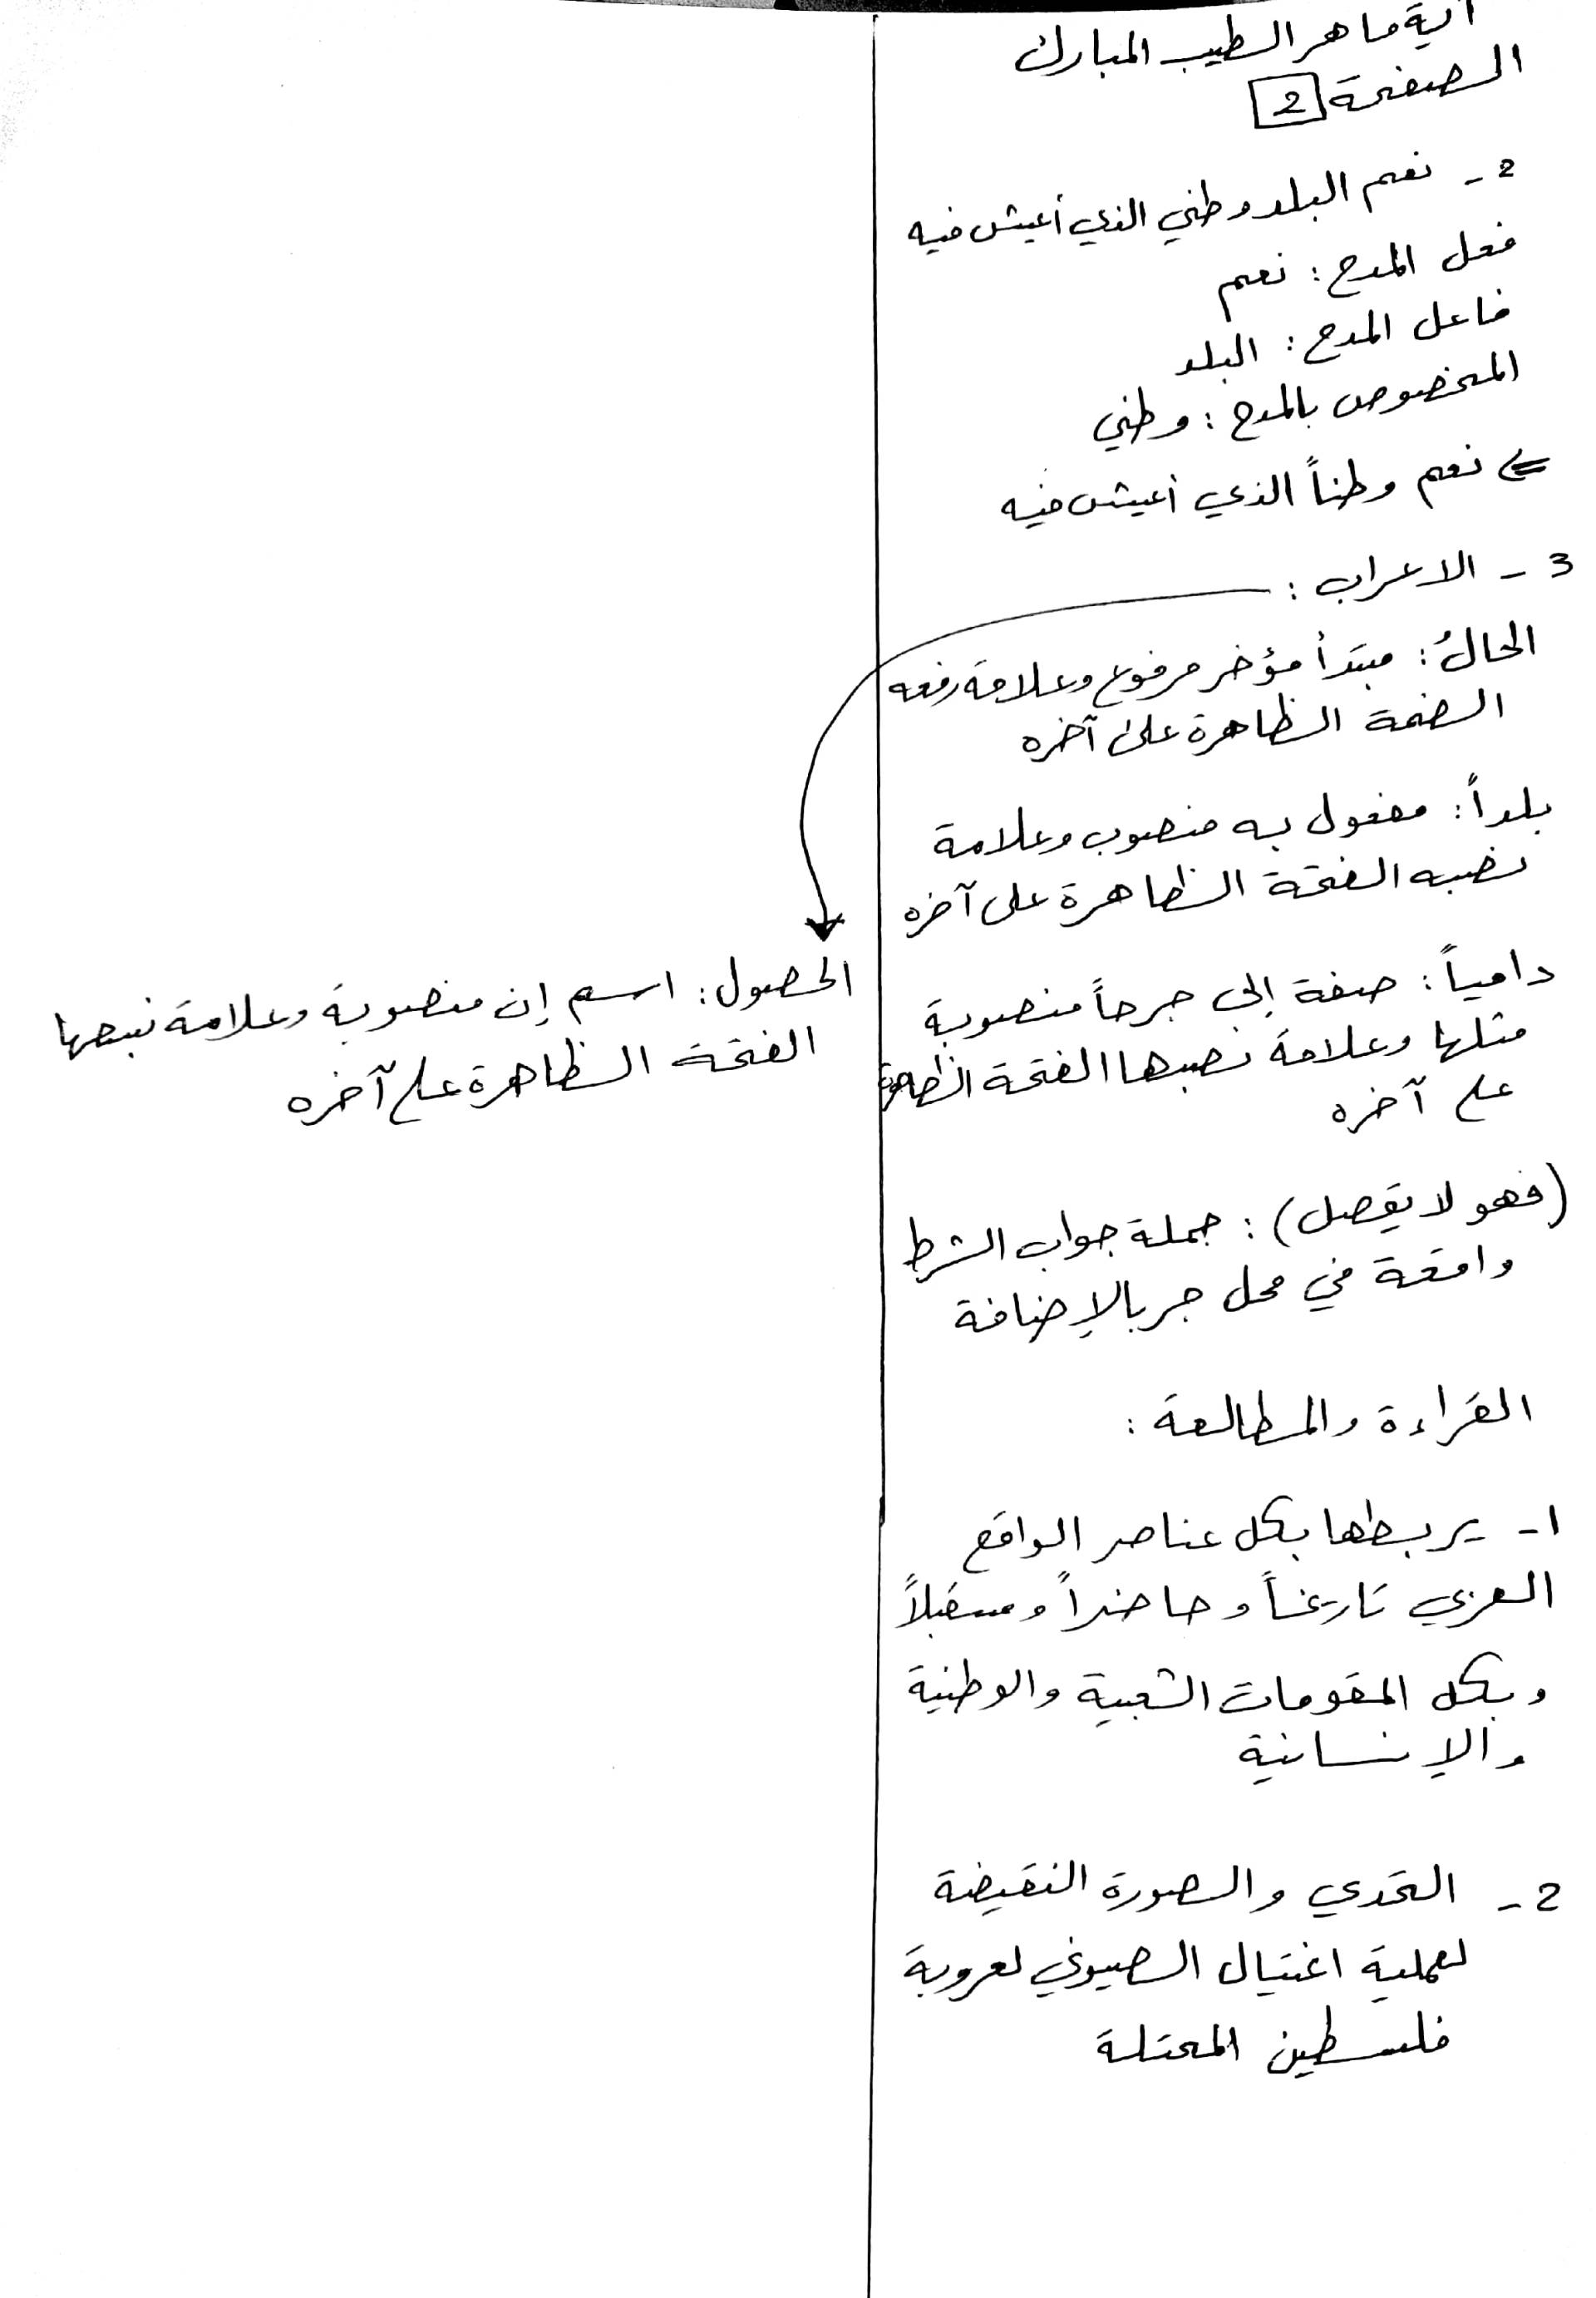 آية ماهر الطيب المبارك
الصفحة 2
2 - نعم البلد وطني الذي أعيش فيه
فعل المدح : نعم
فاعل المدح : البلد
المخصوص بالمدح : وطني
⇐ نعم وطناً الذي أعيش فيه
3 - الاعراب :
الحالُ : مبتدأ مؤخر مرفوع وعلامة رفعه
الضمة الظاهرة على آخره
بلداً : مفعول به منصوب وعلامة
نصبه الفتحة الظاهرة على آخره
دامياً : صفة إلى جرحاً منصوبة
مثلها وعلامة نصبها الفتحة الظاهرة
على آخره
(فهو لا يفصل) : جملة جواب الشرط
واقعة في محل جر بالإضافة
القراءة والمطالعة :
1- يربطها بكل عناصر الواقع
العربي تاريخاً وحاضراً ومستقبلاً
وبكل المقومات الشعبية والوطنية
والإنسانية
2 - التحدي والصورة النقيضة
لعملية اغتيال الصهيوني لعروبة
فلسطين المحتلة
الحصول : اسم إن منصوبة وعلامة نصبها
الفتحة الظاهرة على آخره